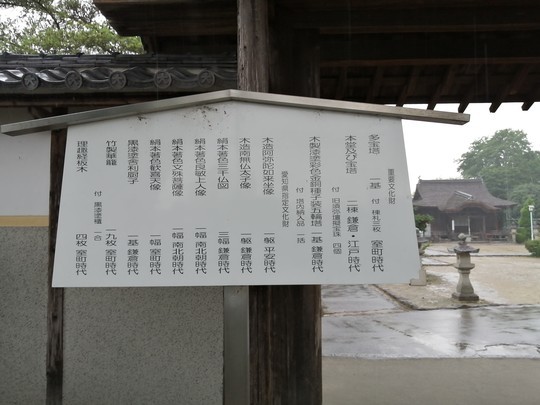 重要文化財
多宝塔 一基 付 棟札三枚 室町時代
本堂及び宝塔 二棟 鎌倉・江戸時代
付 旧須弥壇擬宝珠 四個
木製漆塗彩色金銅種子装五輪塔 一基 鎌倉時代
付 塔内納入品 一括
愛知県指定文化財
木造阿弥陀如来坐像 一躯 平安時代
木造南無仏太子像 一躯 鎌倉時代
絹本著色三千仏図 三幅 鎌倉時代
絹本著色良敏上人像 一幅 南北朝時代
絹本著色文殊菩薩像 一幅 南北朝時代
絹本著色歓喜天像 一幅 室町時代
黒漆塗舎利厨子 一基 鎌倉時代
竹製華籠 九枚 室町時代
付 黒漆塗箱 一合
理趣経板木 四枚 室町時代